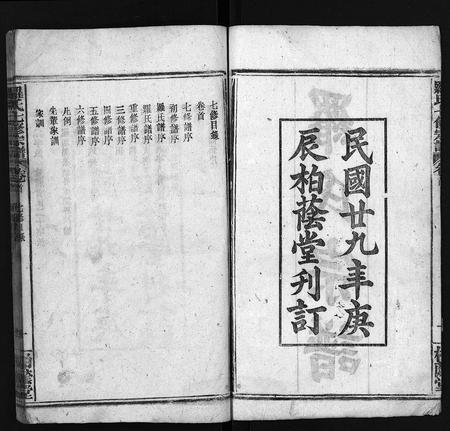 民國廿九年庚
辰柏蔭堂刋訂
七修目錄
卷首
七修譜序
初修譜序
羅氏譜序
羅氏譜序
重修譜序
三修譜序
四修譜序
五修譜序
六修譜序
凡例
家訓
羅氏七修宗譜
卷首
七修目錄
柏蔭堂